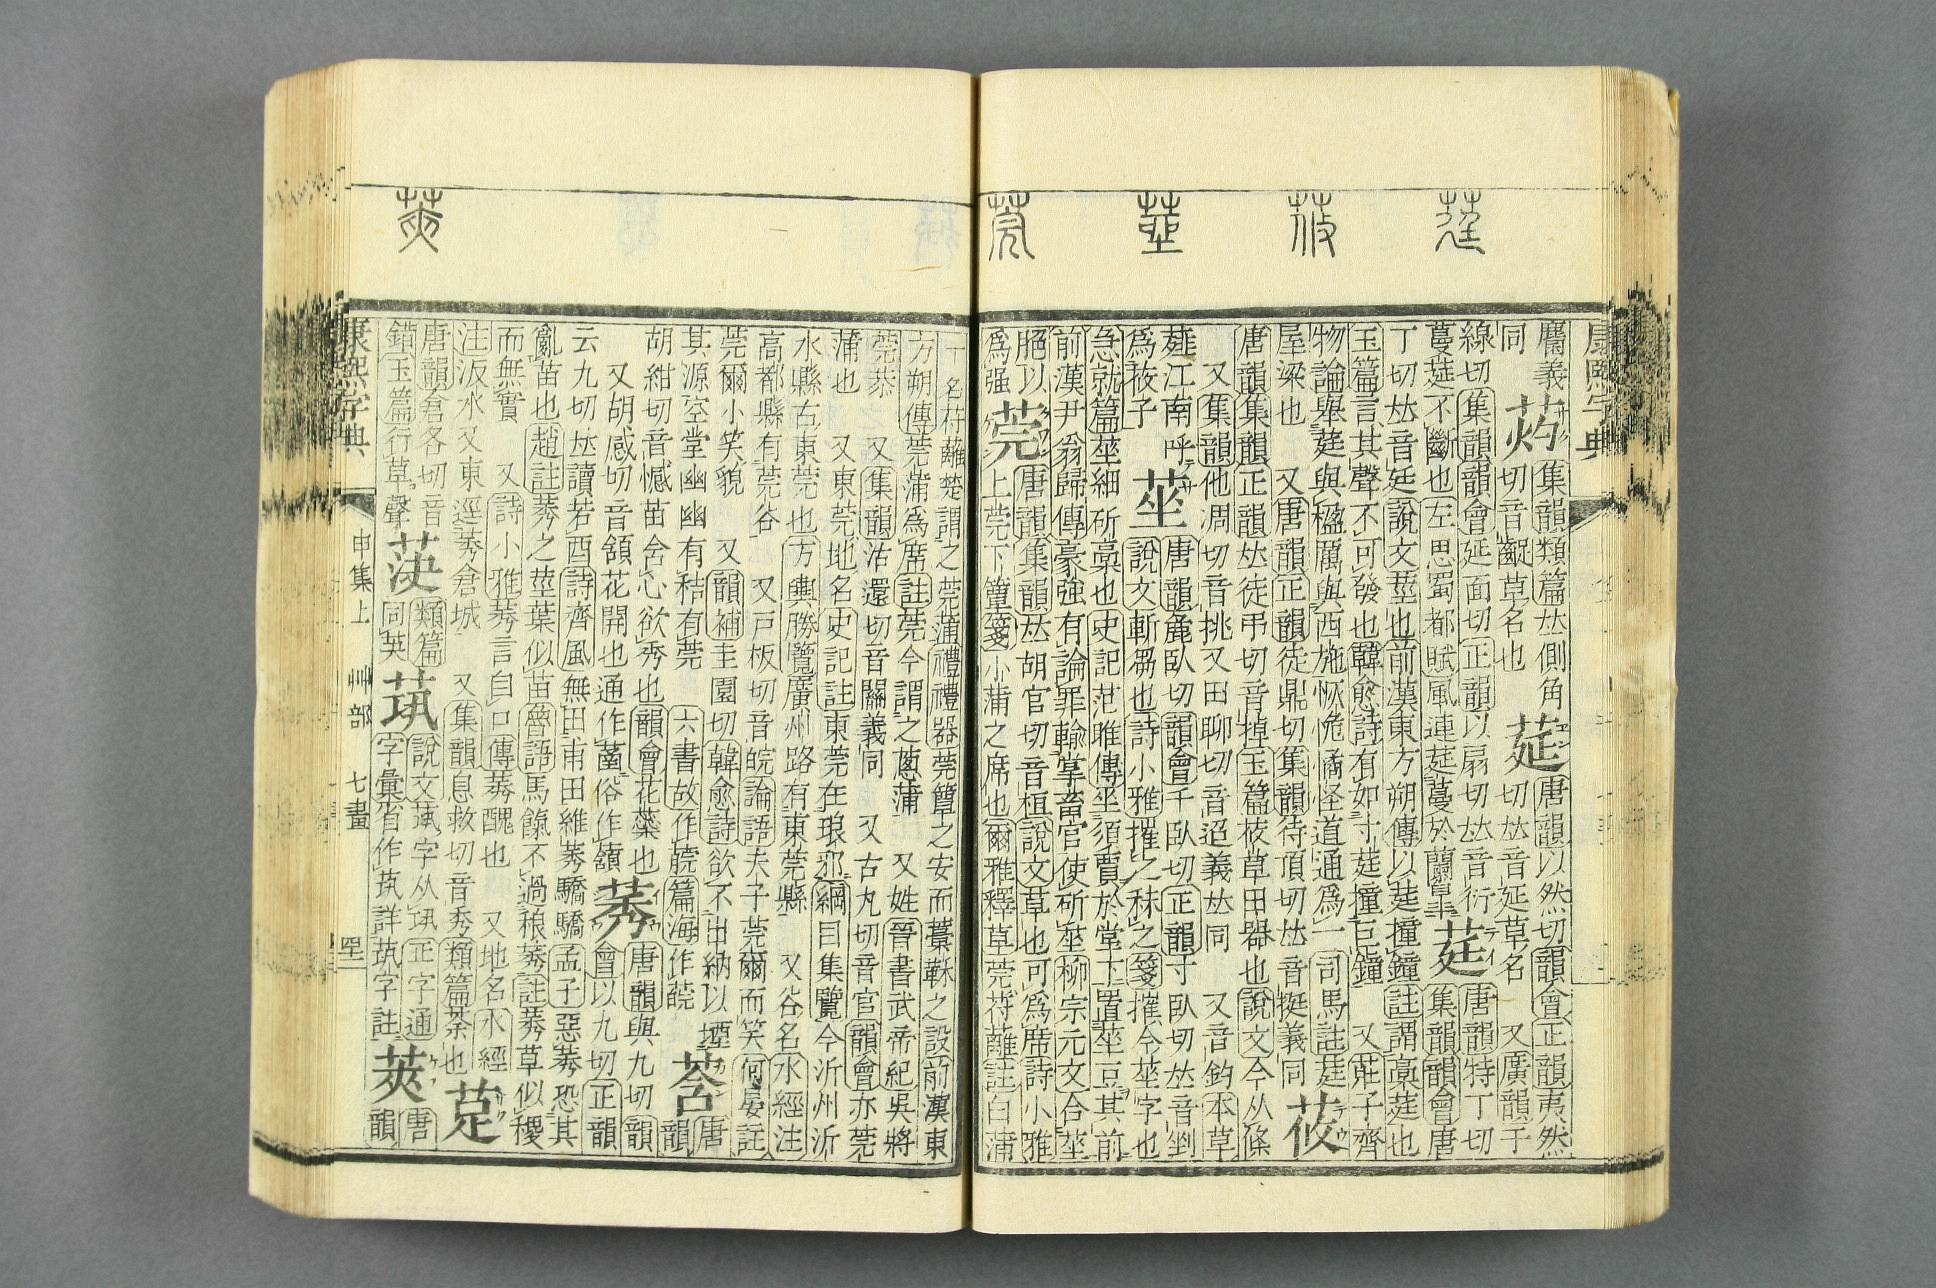 康熙字典
屬義
同
集韻類篇𠀤側角
切音齪草名也
莚
唐韻以然切韻會正韻夷然
切𠀤音延草名 又廣韻于
線切集韻韻會延面切正韻以扇切𠀤音衍
蔓莚不斷也左思蜀都賦風連莚蔓於蘭臯
莛
唐韻特丁切
集韻韻會唐
丁切𠀤音廷說文莖也前漢東方朔傳以莛撞鐘註謂槀莛也
玉篇言其聲不可發也韓愈詩有如寸莛撞巨鐘 又莊子齊
物論舉莛與楹厲與西施恢恑憰怪道通爲一司馬註莛
屋梁也 又唐韻正韻徒鼎切集韻待頂切𠀤音挺義同
莜
唐韻集韻正韻𠀤徒弔切音掉玉篇莜草田器也說文今从條
又集韻他凋切音挑又田聊切音迢義𠀤同 又音鈞本草
江南呼
爲莜子
莝
唐韻麤臥切韻會千臥切正韻寸臥切𠀤音剉
說文斬芻也詩小雅摧之秣之箋摧今莝字也
急就篇莝細斫槀也史記范睢傳坐須賈於堂下置莝豆其前
前漢尹翁歸傳豪強有論罪輸掌畜官使斫莝柳宗元文合莝
肥以
爲强
莞
唐韻集韻𠀤胡官切音桓說文草也可爲席詩小雅
上莞下簟箋小蒲之席也爾雅釋草莞苻蘺註白蒲
一名苻蘺楚謂之莞蒲禮禮器莞簟之安而藁鞂之設前漢東
方朔傳莞蒲爲席註莞今謂之蔥蒲 又姓晉書武帝紀吳將
莞恭 又集韻沽還切音關義同 又古丸切音官韻會亦莞
蒲也 又東莞地名史記註東莞在琅邪綱目集覽今沂州沂
水縣右東莞也方輿勝覽廣州路有東莞縣 又谷名水經注
高都縣有莞谷 又戸板切音皖論語夫子莞爾而笑何晏註
莞爾小笑貌 又韻補圭圜切韓愈詩欲不出納以堙
其源空堂幽幽有秸有莞 六書故作 篇海作
莟
唐
韻
胡紺切音憾莟含心欲秀也韻會花蘂也
又胡感切音頷花開也通作菡俗作
莠
唐韻與九切韻
會以九切正韻
云九切𠀤讀若酉詩齊風無田甫田維莠驕驕孟子惡莠恐其
亂苗也趙註莠之莖葉似苗魯語馬餼不過稂莠註莠草似稷
而無實 又詩小雅莠言自口傳莠醜也 又地名水經
注汳水又東逕莠倉城 又集韻息救切音秀類篇荼也
莡
唐韻倉各切音
錯玉篇行草聲
類篇
同英
茿
說文 字从 正字通
字彙省作茿詳 字註
莢
唐
韻
康熙字典
申集上
艸部
七畫